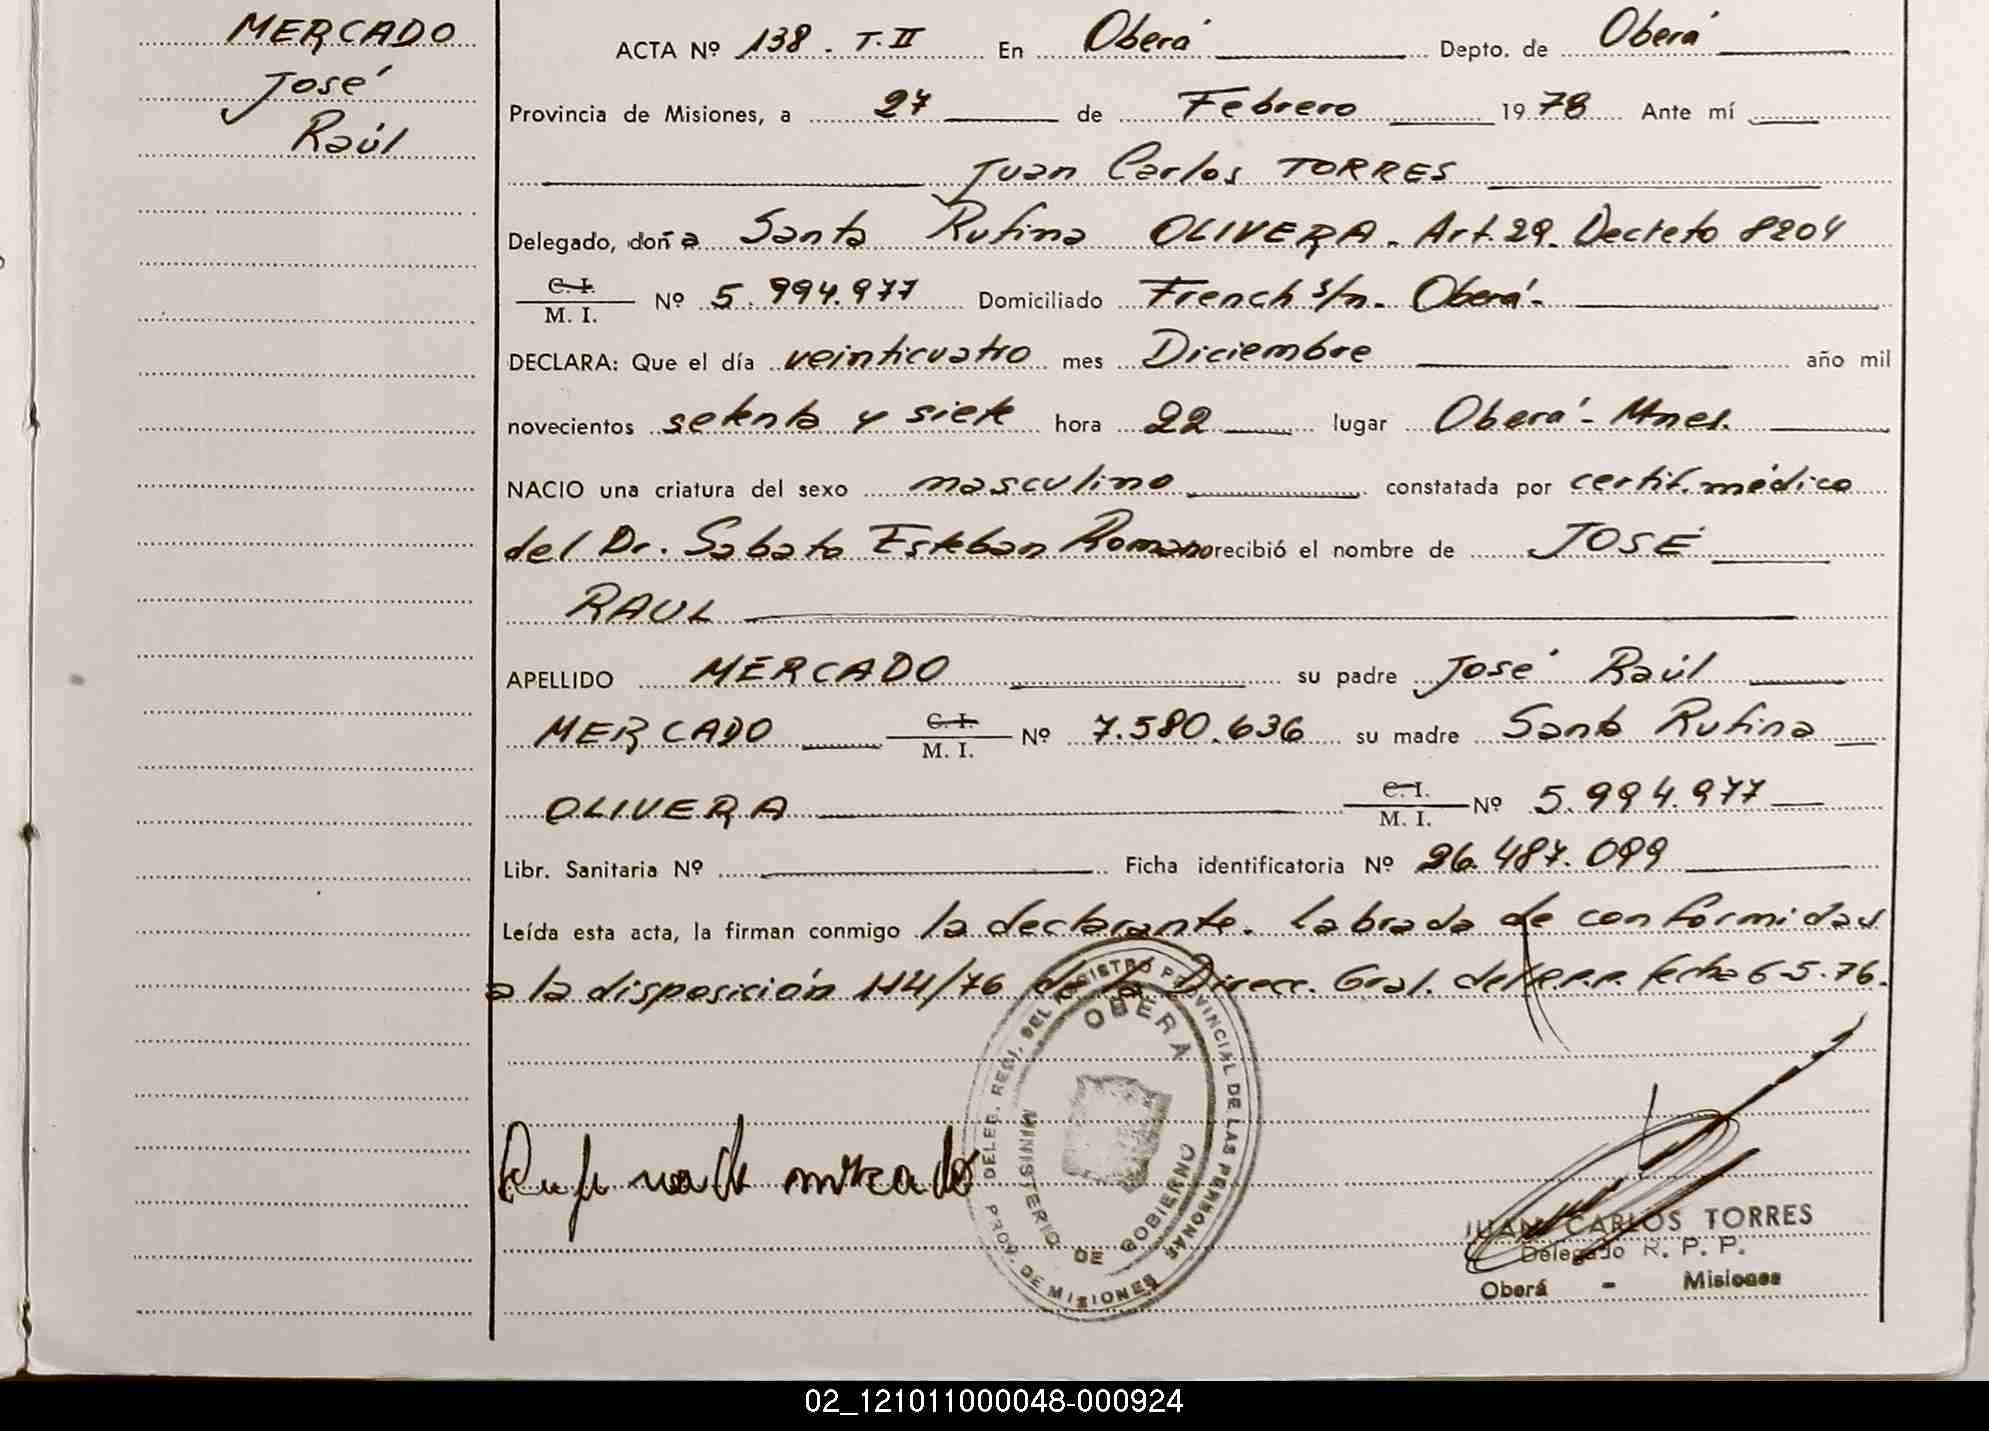 MERCADO
José
Raúl
ACTA Nº 138. T.II En Oberá Depto. de Oberá
Provincia de Misiones, a 27 de Febrero 1978 Ante mí
Juan Carlos TORRES
Delegado, doña Santa Rufina OLIVERA. Art. 29. Decreto 8204
C. I.
M. I. Nº 5.994.977 Domiciliado French s/n. Oberá.
DECLARA: Que el día veinticuatro mes Diciembre año mil
novecientos setenta y siete hora 22 lugar Oberá - Mnes.
NACIO una criatura del sexo masculino constatada por certif. médico
del Dr. Sabato Esteban Romano recibió el nombre de JOSÉ
RAUL
APELLIDO MERCADO su padre José Raúl
MERCADO C. I. M. I. Nº 7.580.636 su madre Santa Rufina
OLIVERA C. I. M. I. Nº 5.994.977
Libr. Sanitaria Nº Ficha identificatoria Nº 26.487.099
Leída esta acta, la firman conmigo la declarante. Labrada de conformidad
a la disposición 114/76 de la Direcc. Gral. del R.P.P. fecha 6-5-76.
DELEG. REGI. DEL REGISTRO PROVINCIAL DE LAS PERSONAS
OBERA
MINISTERIO DE GOBIERNO
PROV. DE MISIONES
Rufina de mercado
JUAN CARLOS TORRES
Delegado R. P. P.
Oberá - Misiones
02_121011000048-000924